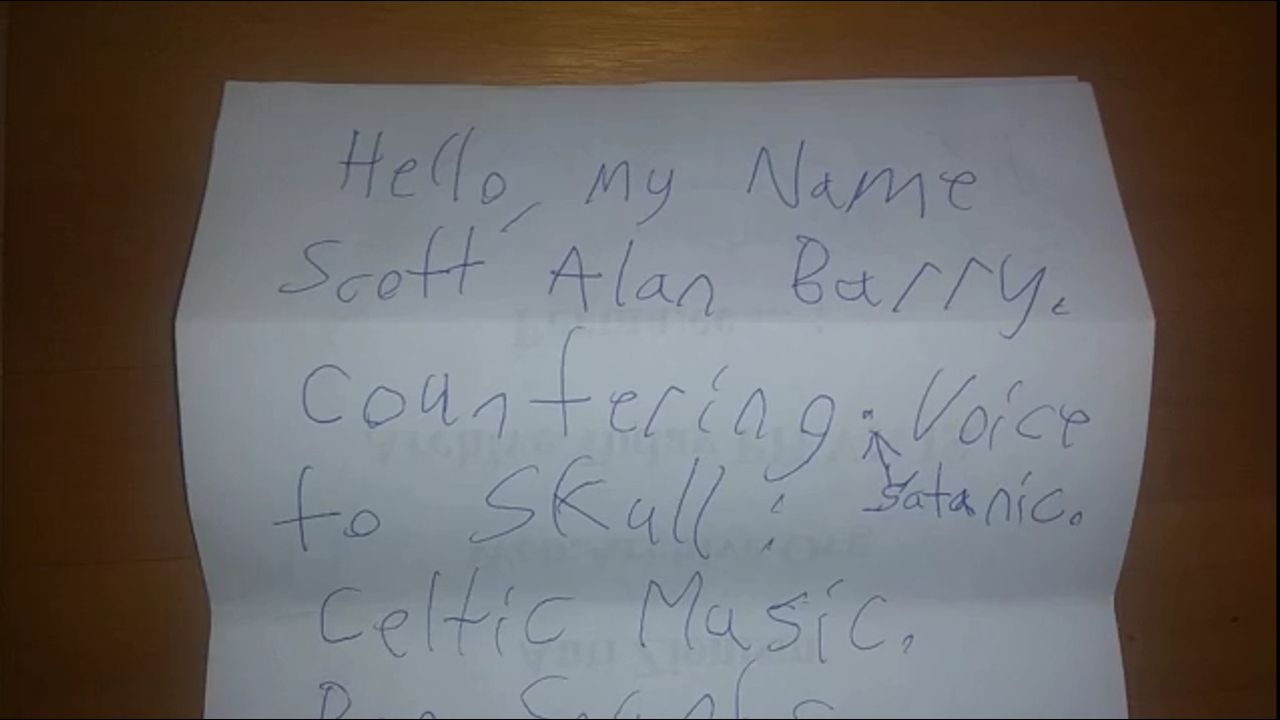 Hello, my Name
Scott Alan Barry.
Countering. Voice
satanic.
to Skull:
Celtic Music.